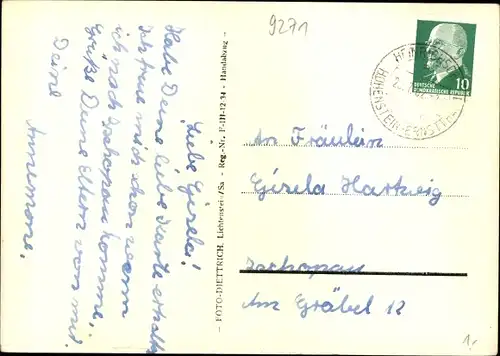 9271
Liebe Gisela!
Habe Deine liebe Karte erhalten
Ich freue mich schon wenn
ich nach Zschopau komme.
Grüße Deine Eltern von mir.
Deine
Annemone.
- FOTO-DIETTRICH, Lichtenstein/Sa - Reg.-Nr. F-III-12-34 - Handabzug -
DEUTSCHE
DEMOKRATISCHE REPUBLIK
10
HOHENSTEIN-ERNSTTHAL
An Fräulein
Gisela Hartwig
Zschopau
Am Gräbel 12
1,-